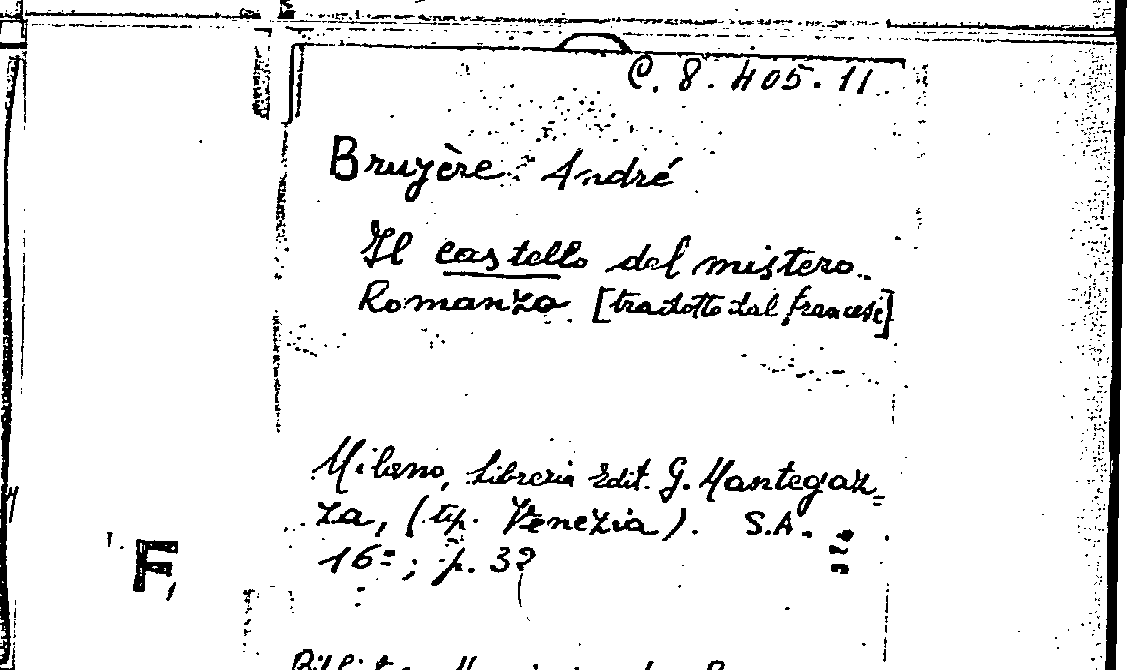 C. 8. 405. 11
Bruyère André
Il castello del mistero.
Romanzo [tradotto dal francese]
Milano, Libreria Edit. G. Mantegaz=
za, (tip. Venezia). S.A.
16°; p. 32
F